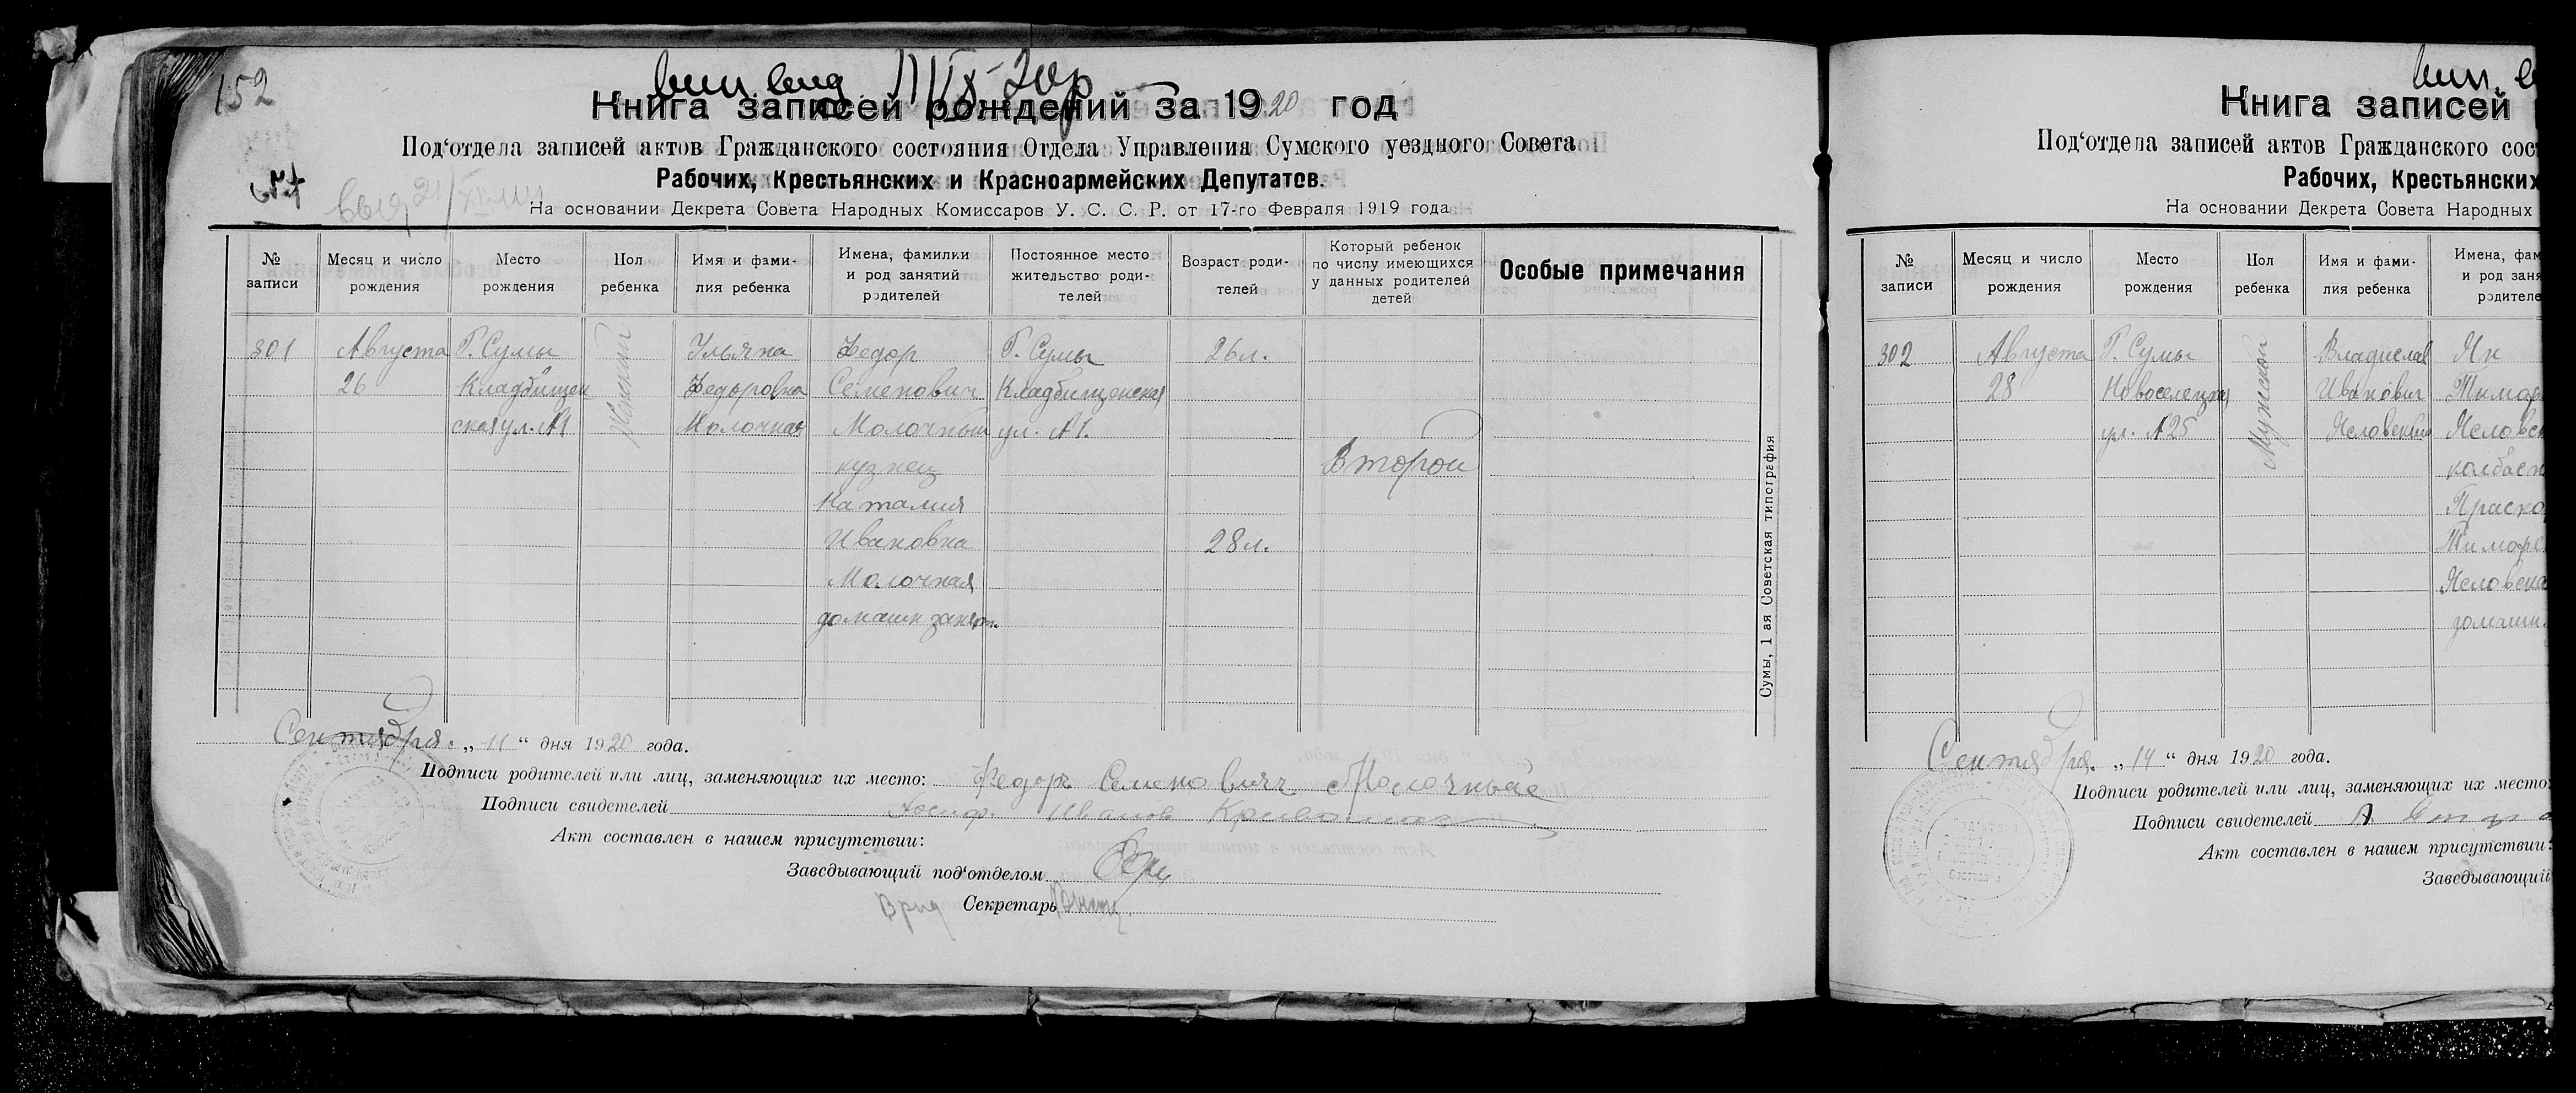 152
Книга записей рождений за 1920 год
Под‘отдела записей актов Гражданского состояния Отдела Управления Сумского уездного Совета
Рабочих, Крестьянских и Красноармейских Депутатов.
На основании Декрета Совета Народных Комиссаров У. С. С. Р. от 17-го Февраля 1919 года
№ записи
Месяц и число рождения
Место рождения
Пол ребенка
Имя и фами- лия ребенка
Имена, фамилии и род занятий родителей
Постоянное место жительство роди- телей
Возраст роди- телей
Который ребенок по числу имеющихся у данных родителей детей
Особые примечания
301 Августа Г. Сумы Женский Ульяна Федор Г. Сумы 26 л.
26 Кладбищен Федоровна Семенович Кладбищенская
ская ул. №1 Молочная Молочный ул. №1.
кузнец Второй
Наталия
Ивановна 28 л.
Молочная
домашн занят.
Сумы, 1 ая Советская типография
Сентября. „ 11 “ дня 1920 года.
Подписи родителей или лиц, заменяющих их место: Федоръ Семеновичъ Молочный
Подписи свидетелей Иванов
Акт составлен в нашем присутствии:
Заведывающий под‘отделом
Врид Секретарь
Книга записей
Под‘отдела записей актов Гражданского сос
Рабочих, Крестьянских
На основании Декрета Совета Народных
№ записи
Месяц и число рождения
Место рождения
Пол ребенка
Имя и фами- лия ребенка
Имена, фам
и род заня
родителе
302 Августа Г. Сумы Мужской Владислав Ян
28 Новоселецкая Иванович
ул. №25
колбасн
Праско
домашн
Сентября. „ 14 “ дня 1920 года.
Подписи родителей или лиц, заменяющих их место:
Подписи свидетелей
Акт составлен в нашем присутствии:
Заведывающий